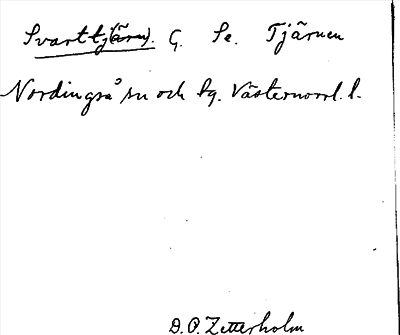 Svarttj(ärn). G. Se. Tjärnen
Nordingrå sn och sg. Västernorrl. l.
D. O. Zetterholm